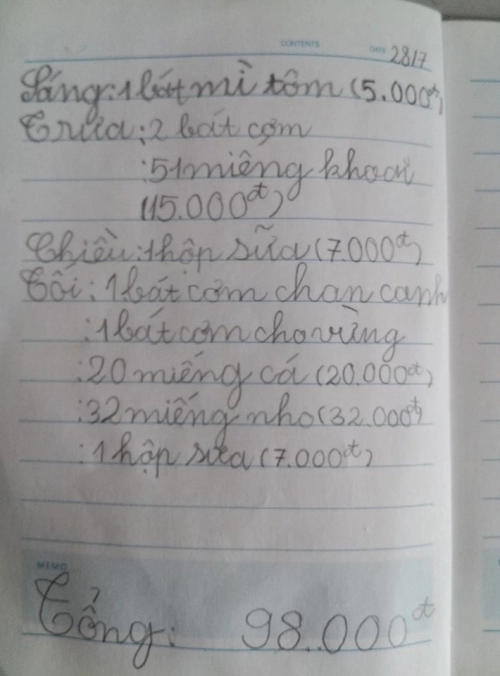 CONTENTS
DATE 28/7
Sáng: 1 bát mì tôm (5.000đ)
Trưa: 2 bát cơm
: 51 miếng khoai
(15.000đ)
Chiều: 1 hộp sữa (7.000đ)
Tối: 1 bát cơm chan canh
: 1 bát cơm cho vừng
: 20 miếng cá (20.000đ)
: 32 miếng nho (32.000đ)
: 1 hộp sữa (7.000đ)
MEMO
Tổng: 98.000đ